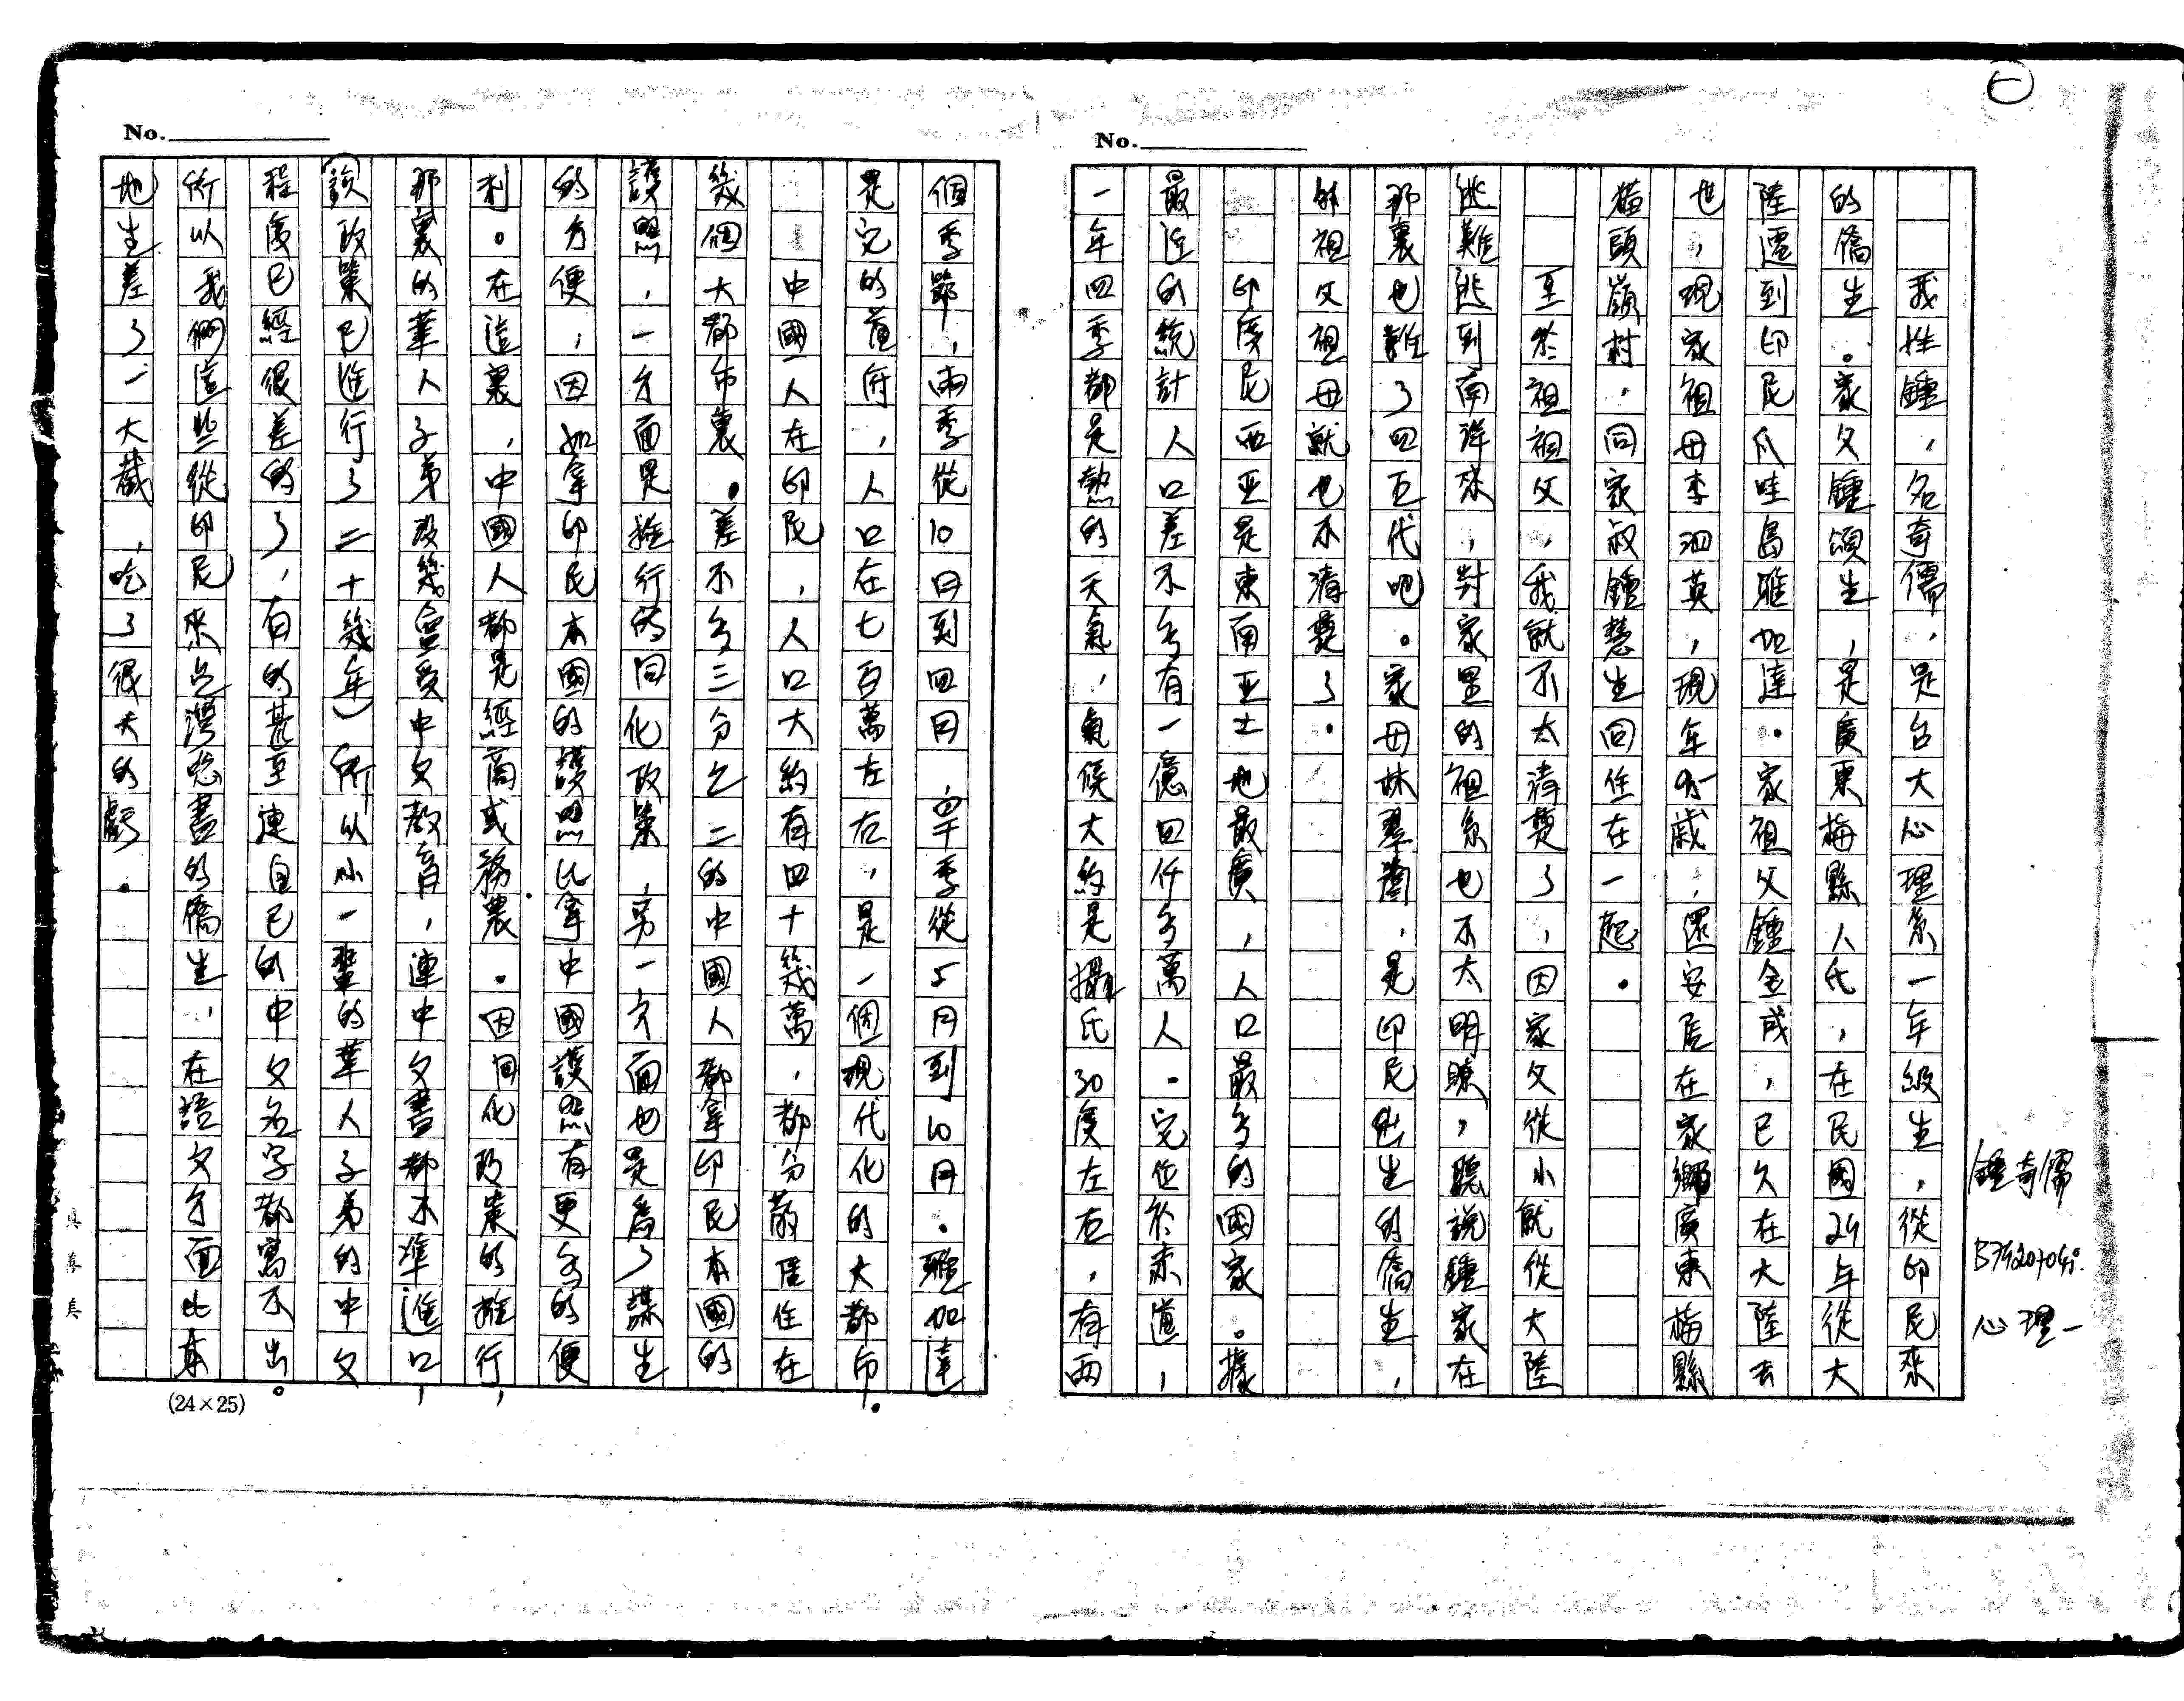 ㊀
No.
我姓鍾,名奇儒,是台大心理系一年級生,從印尼來
的僑生。家父鍾頌生,是廣東梅縣人氏,在民國24年從大
陸遷到印尼爪哇島雅加達.家祖父鍾金成,已久在大陸去
世,現家祖母李泗英,現年歲,還安居在家鄉廣東梅縣
嶺村.同家叔鍾慧生回住在一起.
至於祖祖父,我就不太清楚了,因家父從小就從大陸
逃難逃到南洋來,對家里的祖系也不太明瞭,聽說鍾家在
那裏也難了四五代吧。家母林翠蘭,是印尼出生的僑生,
外祖父祖母就也不清楚了.
印度尼西亞是東南亞土地最廣,人口最多的國家。據
最近的統計人口差不多有一億四仟多萬人.它位於赤道,
一年四季都是熱的天氣,氣候大約是攝氏30度左右,有兩
個季節,雨季從10月到四月,旱季從5月到10月.雅加達
是它的首府,人口在七百萬左右,是一個現代化的大都市.
中國人在印尼,人口大約有四十幾萬,都分散居住在
幾個大都市裏.差不多三分之二的中國人都拿印尼本國的
護照,一方面是推行的同化政策,另一方面也是爲了謀生
的方便,因如拿印尼本國的護照比拿中國護照有更多的便
利。在這裏,中國人都是經商或務農.因同化政策的推行,
那裏的華人子弟没幾會受中文教育,連中文書都不準進口,
(該政策已進行了二十幾年)所以小一輩的華人子弟的中文
程度已經很差的了,有的甚至連自己的中文名字都寫不出。
所以我們這些從印尼來台灣唸書的僑生,在語文方面比本
地生差了一大截,吃了很大的虧.
(24×25)
鍾奇儒
心理一